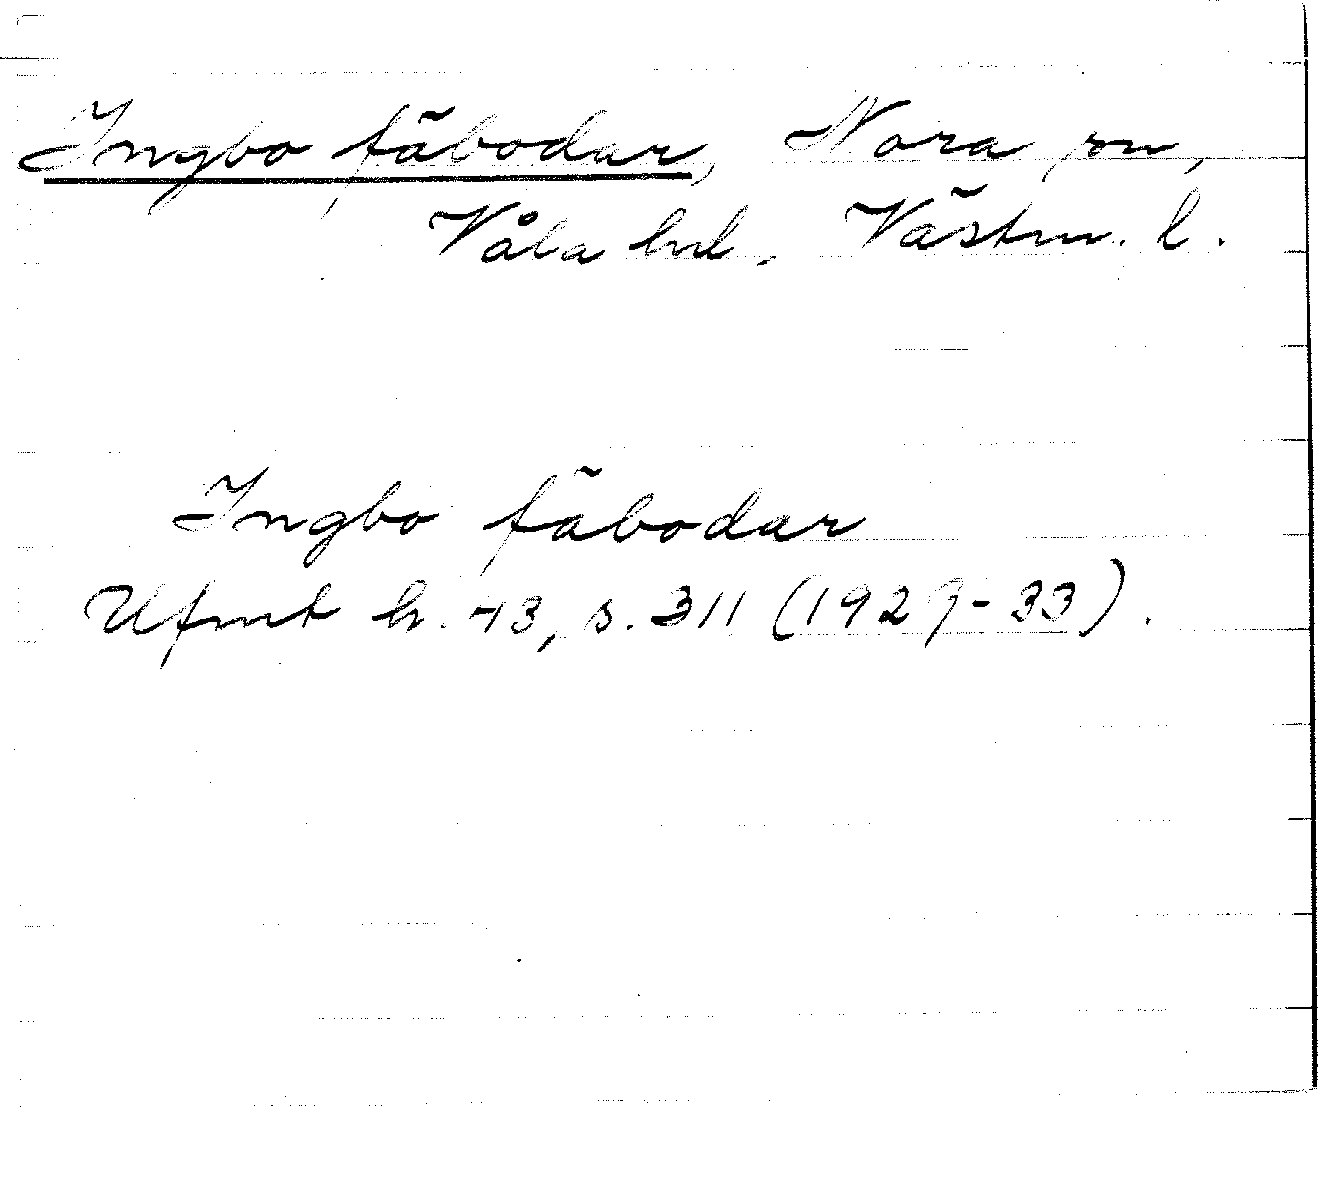 Ingbo fäbodar, Nora sn,
Våla hd. Västm. l.
Ingbo fäbodar
Ufmt h. 43, s. 311 (1929-33).